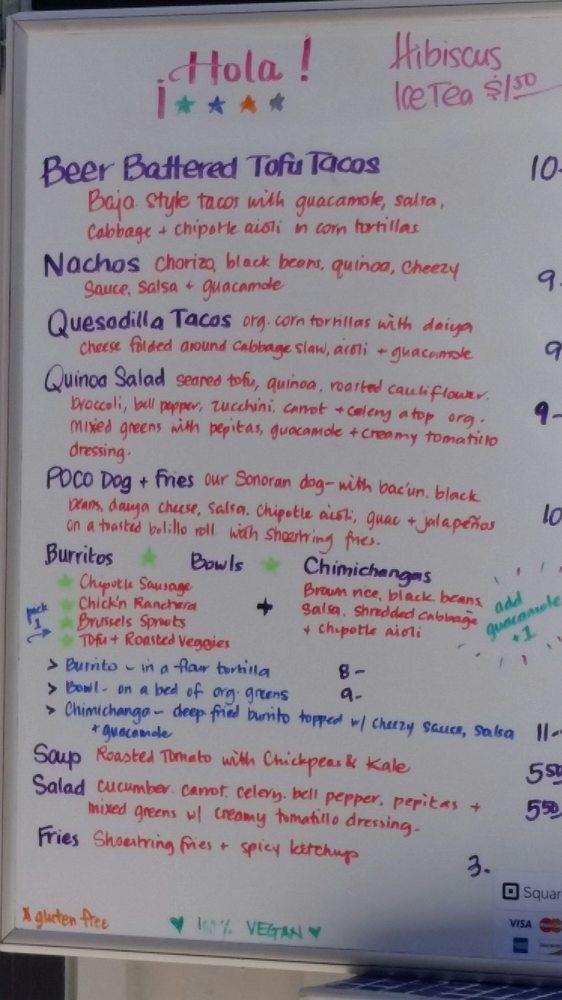 ¡Hola!
Hibiscus
Ice Tea $1.50
Beer Battered Tofu Tacos 10-
Baja style tacos with guacamole, salsa,
cabbage + chipotle aioli in corn tortillas
Nachos chorizo, black beans, quinoa, cheezy 9-
sauce, salsa + guacamole
Quesadilla Tacos org. corn tortillas with daiya 9
cheese folded around cabbage slaw, aioli + guacamole
Quinoa Salad seared tofu, quinoa, roasted cauliflower, 9-
broccoli, bell pepper, zucchini, carrot + celery atop org.
mixed greens with pepitas, guacamole + creamy tomatillo
dressing.
POCO Dog + Fries our Sonoran dog- with bac'un, black
beans, daiya cheese, salsa, chipotle aioli, guac + jalapeños 10
on a toasted bolillo roll with shoestring fries.
Burritos Bowls Chimichangas
pick 1
Chipotle Sausage
Chick'n Ranchera
Brussels Sprouts
Tofu + Roasted Veggies
+
Brown rice, black beans,
salsa, shredded cabbage
+ chipotle aioli
add
guacamole
+1
> Burrito - in a flour tortilla 8-
> Bowl - on a bed of org. greens 9-
> Chimichanga - deep fried burrito topped w/ cheezy sauce, salsa 11-
+ guacamole
Soup Roasted Tomato with Chickpeas & Kale 5.50
Salad cucumber, carrot, celery, bell pepper, pepitas + 5.50
mixed greens w/ creamy tomatillo dressing.
Fries Shoestring fries + spicy ketchup 3.
Squar
VISA
* gluten free
100% VEGAN